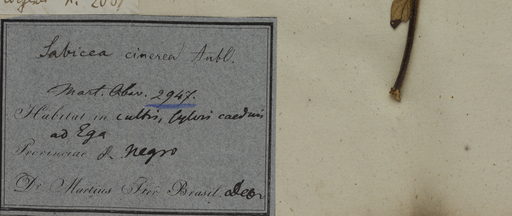 Sabicea cinerea Aubl.
Mart. Obs. 2947.
Habitat in cultis, sylvis caeduis
ad Ega
Provinciae R. Negro
Dr. Martius Iter Brasil. Dec